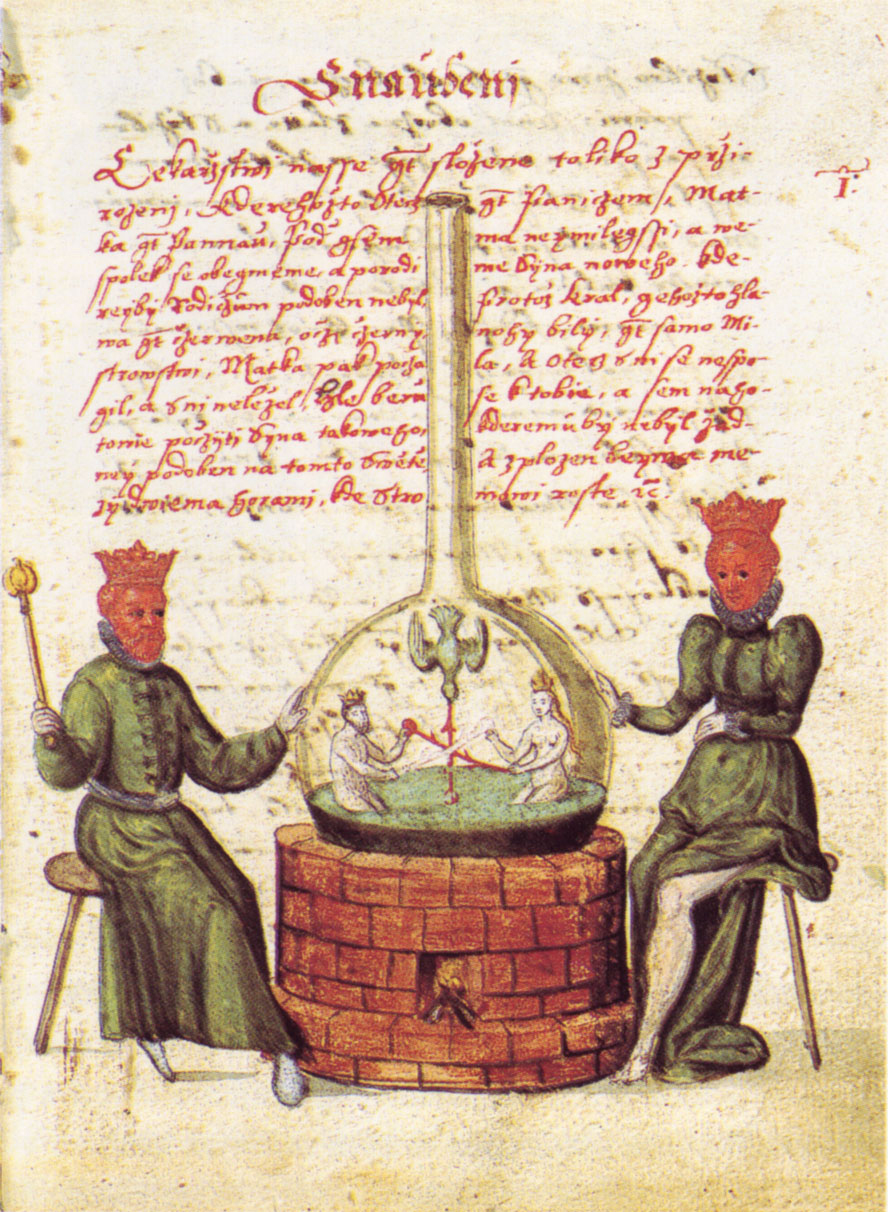 Snaubenj
Lekarzstwi nasse gt slożene toliko z przi-
I:
rozenj, kderehożto Otecz gt Paniczem, Mat-
ka gt Pannau, Pod gsem ma neymilegssj, a we-
spolek se obegmeme, a porodi me Syna noweho. kde-
reyby Rodiczum podoben nebyl, Protoż kral, gehożto hla-
wa gt czerwena, oczi czerny, nohy bily, gt samo Mi-
strowstwi, Matka pak pocza la, A Otecz s ni se nespo-
gil, a s ni neleżel, Hle beru se k tobie, a sem naho-
towie pożyti Syna takoweho, kderemu by nebyl żad-
ney podoben na tomto Swete, A zplozen beywa me-
zy dwiema horami, kde Stro mowi roste rc: